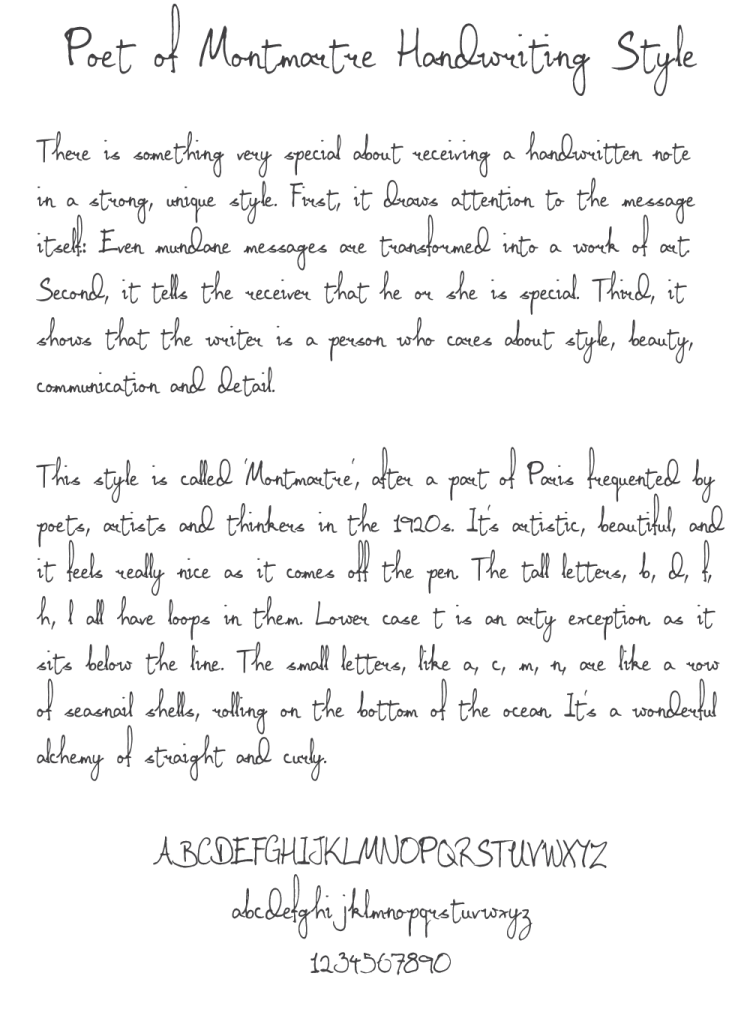 Poet of Montmartre Handwriting Style
There is something very special about receiving a handwritten note
in a strong, unique style. First, it draws attention to the message
itself: Even mundane messages are transformed into a work of art.
Second, it tells the receiver that he or she is special. Third, it
shows that the writer is a person who cares about style, beauty,
communication and detail.
This style is called 'Montmartre', after a part of Paris frequented by
poets, artists and thinkers in the 1920s. It's artistic, beautiful, and
it feels really nice as it comes off the pen. The tall letters, b, d, f,
h, l all have loops in them. Lower case t is an arty exception as it
sits below the line. The small letters, like a, c, m, n, are like a row
of seasnail shells, rolling on the bottom of the ocean. It's a wonderful
alchemy of straight and curly.
ABCDEFGHIJKLMNOPQRSTUVWXYZ
abcdefghijklmnopqrstuvwxyz
1234567890